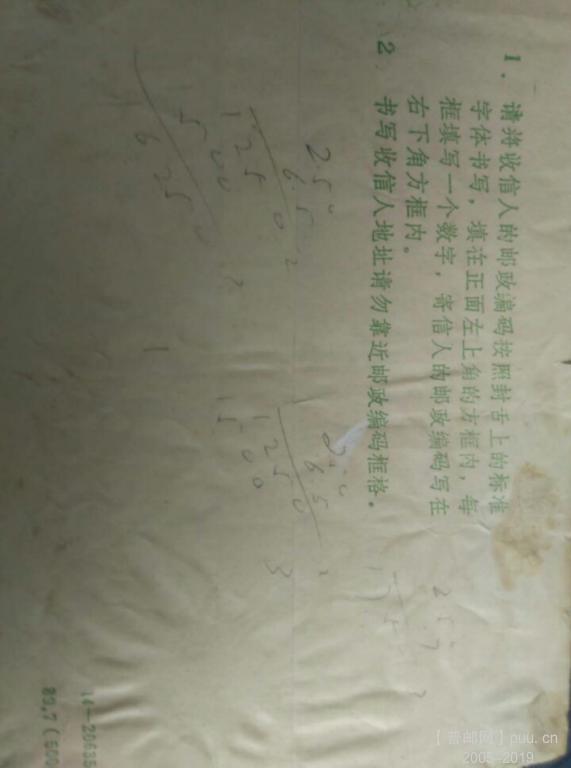 1. 请将收信人的邮政编码按照封舌上的标准
字体书写，填在正面左上角的方框内，每
框填写一个数字，寄信人的邮政编码写在
右下角方框内。
2 书写收信人地址请勿靠近邮政编码框格。
250
6.5
1250
1500
6250
6.5
1250
1500
3
257
14-20635
89.7(500
【普邮网】puu.cn
2005-2019